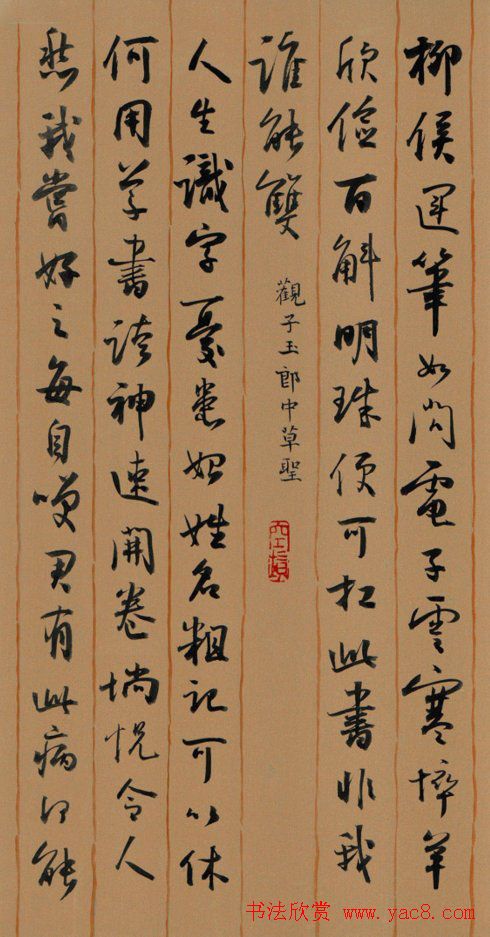 柳侯運筆如閃電子雲寒悴羊
欣儉百斛明珠便可扛此書非我
誰能雙
觀子玉郎中草聖
人生識字憂患始姓名粗記可以休
何用草書誇神速開卷惝怳令人
愁我嘗好之每自笑君有此病何能
书法欣赏 www.yac8.com